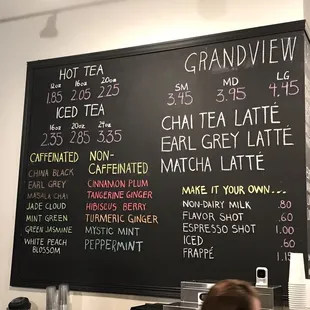 HOT TEA
12oz 16oz 20oz
1.85 2.05 2.25
ICED TEA
16oz 20oz 24oz
2.35 2.85 3.35
CAFFEINATED
CHINA BLACK
EARL GREY
MASALA CHAI
JADE CLOUD
MINT GREEN
GREEN JASMINE
WHITE PEACH
BLOSSOM
NON-
CAFFEINATED
CINNAMON PLUM
TANGERINE GINGER
HIBISCUS BERRY
TURMERIC GINGER
MYSTIC MINT
PEPPERMINT
GRANDVIEW
SM MD LG
3.45 3.95 4.45
CHAI TEA LATTÉ
EARL GREY LATTÉ
MATCHA LATTÉ
MAKE IT YOUR OWN...
NON-DAIRY MILK .80
FLAVOR SHOT .60
ESPRESSO SHOT 1.00
ICED .60
FRAPPÉ